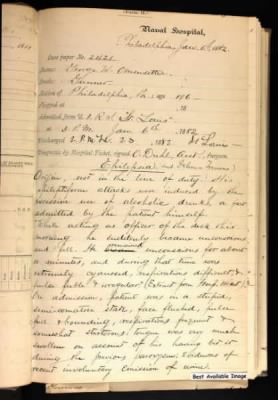 Naval Hospital,
Philadelphia, Jan. 6th, 1882.
Case paper No. 2421
Name: George W. Omensetter
Rate: Gunner
Native of Philadelphia, Pa. age
Shipped at 18
Admitted from U. S. R. S. St. Louis
at P.M. Jan 6th 1882
Discharged 2 P.M. 23 1882 St Louis
Diagnosis by Hospital Ticket, signed Surgeon.
Epilepsia
Origin, not in the line of duty: His
epileptiform attacks was induced by the
excessive use of alcoholic drinks, as
admitted by the patient himself
While acting as officer of the deck this
morning he suddenly became unconscious
and fell. He unconscious for about
minutes, and during that time was
extremely cyanosed, respirations difficult &
pulse feeble & irregular. (Extract from
On admission, patient was in a stupid,
semi-comatose state, face flushed, pulse
full & bounding, respirations frequent &
somewhat stertorous, tongue was very much
swollen on account of his having bit it
during the previous paroxysm. Evidences of
recent involuntary emission of urine.
Best Available Image